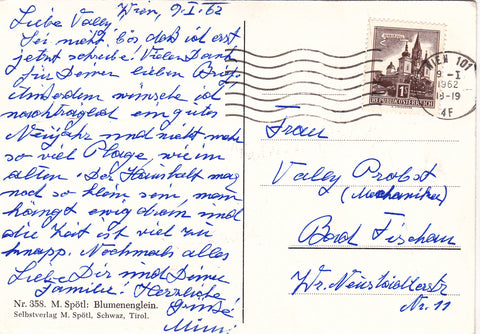 Wien, 9.I.62
Liebe Vally
Sei nicht bös daß ich erst
jetzt schreibe! Vielen Dank
für Deinen lieben Brief,
außerdem wünsche ich
nachträglich ein gutes
Neujahr und nicht mehr
so viel Plage, wie im
alten. Der Haushalt mag
noch so klein sein, man
hängt ewig dran und
die Zeit ist viel zu
knapp. Nochmals alles
Liebe Dir und Deiner
Familie! Herzliche
Grüße
Mimi
Nr. 358. M. Spötl: Blumenenglein.
Selbstverlag M. Spötl, Schwaz, Tirol.
REPUBLIK ÖSTERREICH
WIEN 101
9.-I.
1962
18-19
4F
Frau
Vally Probst
(Mechaniker)
Bad Fischau
Wr. Neustädterstr.
Nr. 11